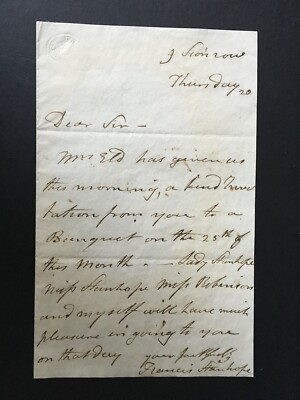 9 Sion row
Thursday 20
Dear Sir -
Mrs Eld has given us
this morning, a kind Invi
tation from you to a
Banquet on the 25th of
this Month - Lady Stanhope
Miss Stanhope Miss Robinson
and myself will have much
pleasure in going to you
on that day your faithfully
Francis Stanhope